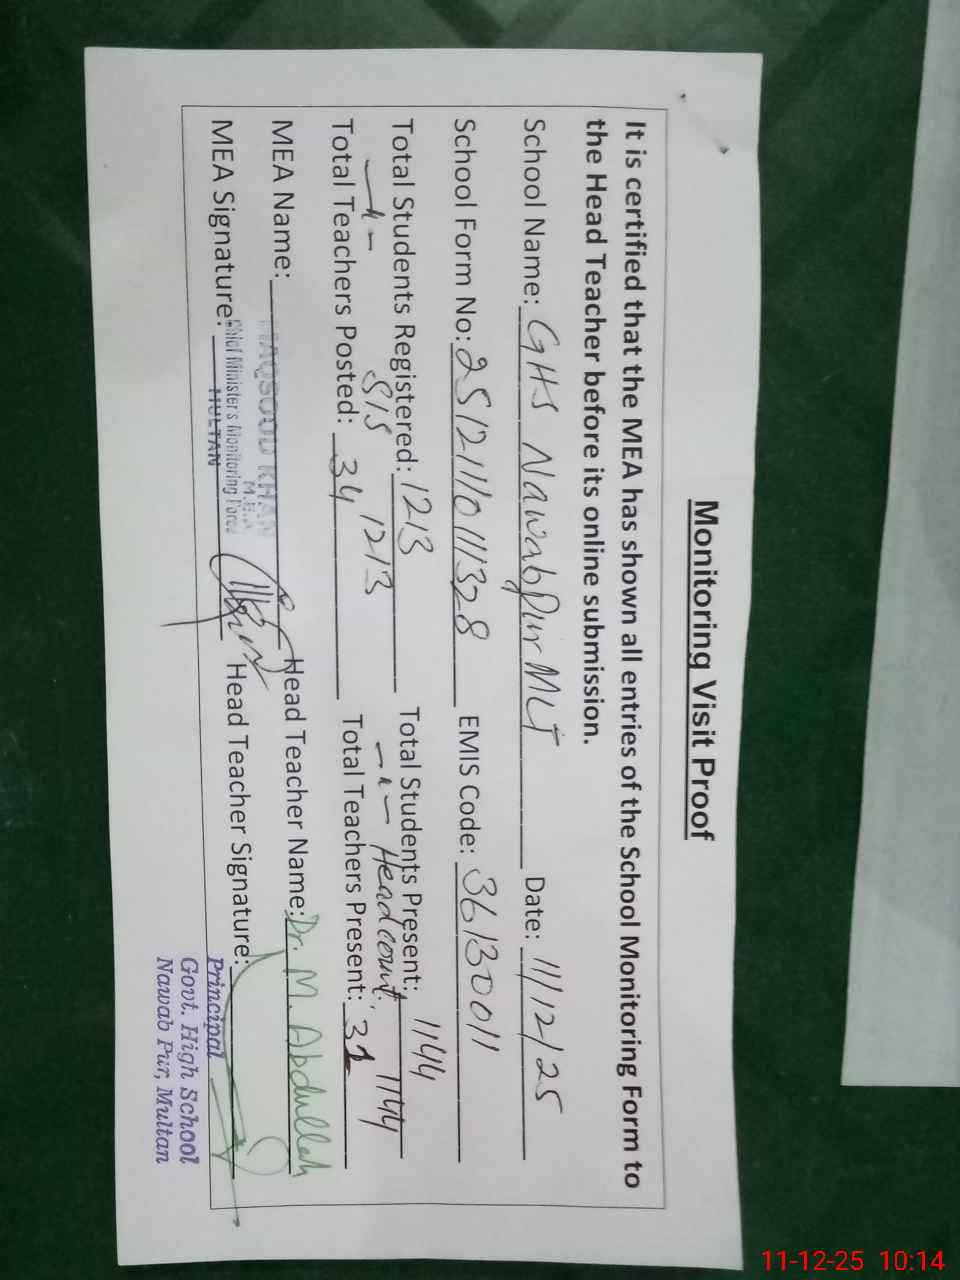 Monitoring Visit Proof
It is certified that the MEA has shown all entries of the School Monitoring Form to
the Head Teacher before its online submission.
School Name: GHS Nawabpur MLT Date: 11/12/25
School Form No: 2512110111328 EMIS Code: 36130011
Total Students Registered: 1213 Total Students Present: 1144
SIS 1213 Headcount: 1144
Total Teachers Posted: 34 Total Teachers Present: 31
MEA Name: MAQSOOD KHAN Head Teacher Name: Dr. M. Abdullah
M.E.A
MEA Signature: Chief Minister's Monitoring Force Head Teacher Signature:
MULTAN
Principal
Govt. High School
Nawab Pur, Multan
11-12-25 10:14